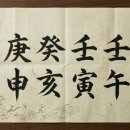 壬壬癸庚
午寅亥申